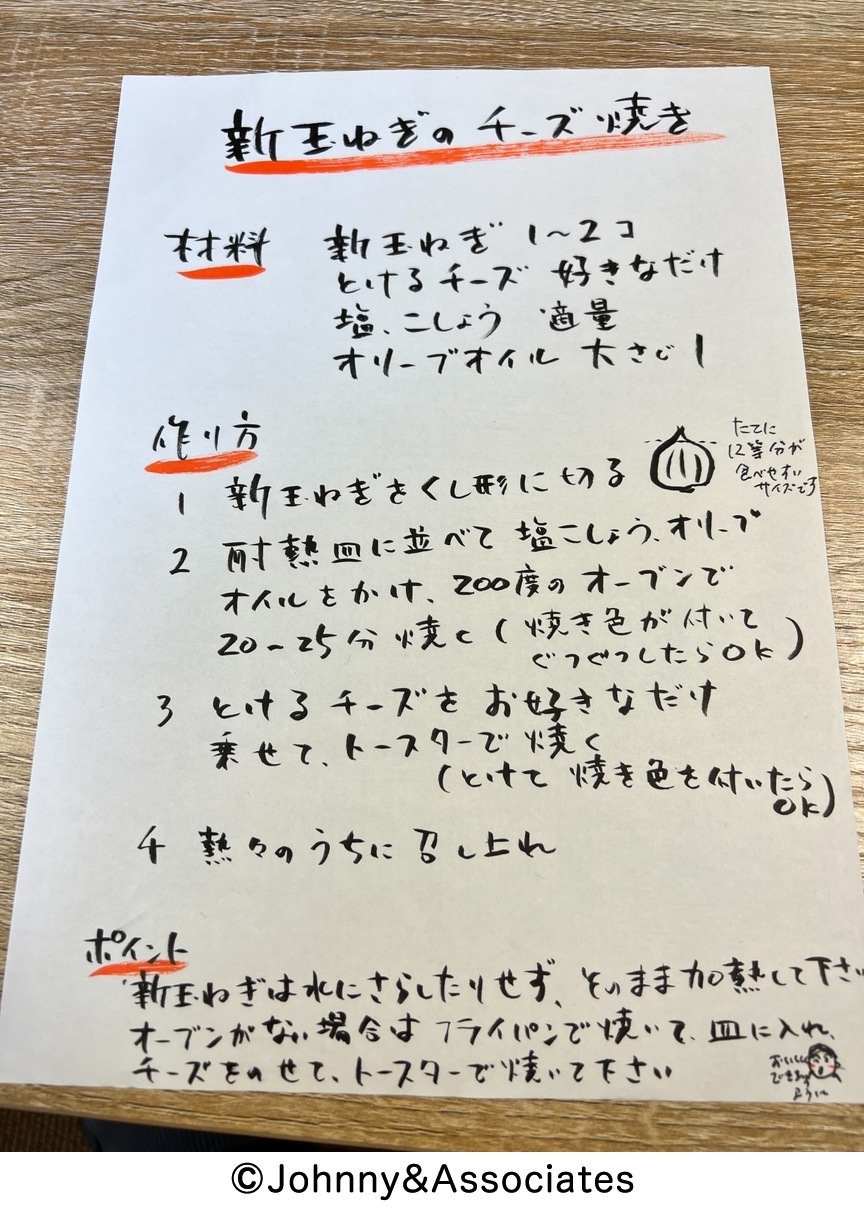 新玉ねぎのチーズ焼き
材料 新玉ねぎ 1〜2コ
とけるチーズ 好きなだけ
塩、こしょう 適量
オリーブオイル 大さじ1
作り方
1 新玉ねぎをくし形に切る
たてに
12等分が
食べやすい
サイズです
2 耐熱皿に並べて 塩こしょう、オリーブ
オイルをかけ、200度のオーブンで
20〜25分 焼く(焼き色が付いて
ぐつぐつしたらOK)
3 とけるチーズをお好きなだけ
乗せて、トースターで焼く
(とけて 焼き色を付いたら
OK)
4 熱々のうちに召し上れ
ポイント
新玉ねぎは水にさらしたりせず、そのまま加熱して下さい
オーブンがない場合はフライパンで焼いて、皿に入れ、
チーズをのせて、トースターで焼いて下さい
おいしく
できます
ように
©Johnny&Associates